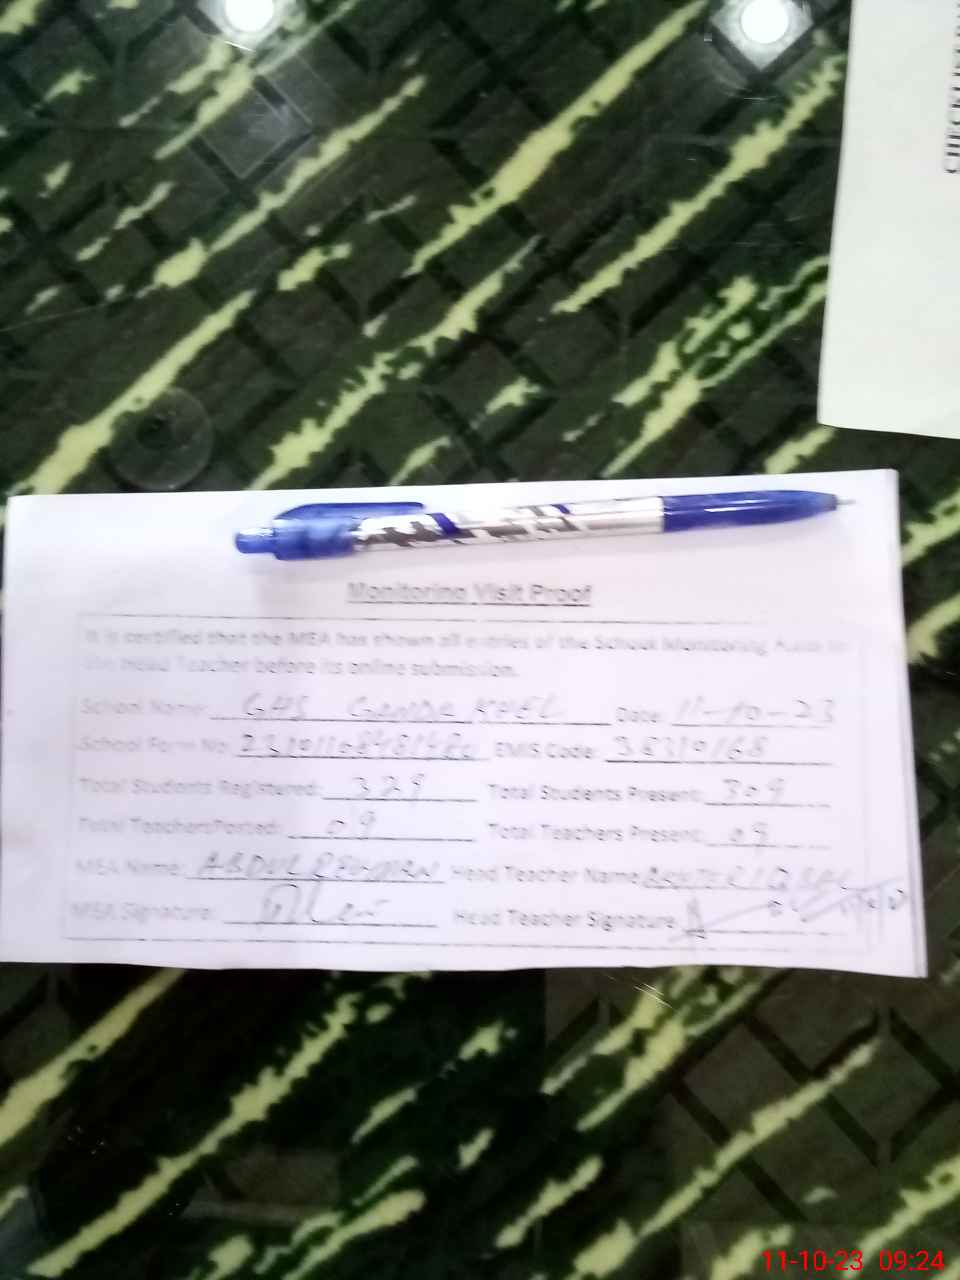 Monitoring Visit Proof
It is certified that the MEA has shown all entries of the School Monitoring
the Head Teacher before its online submission.
School Name: GHS KHEL Date: 11-10-23
School Form No: EMIS Code:
Total Students Registered: 329 Total Students Present: 309
Total Teachers Posted: 09 Total Teachers Present: 09
MEA Name: ABDUL REHMAN Head Teacher Name: IQBAL
MEA Signature: Head Teacher Signature
11-10-23 09:24